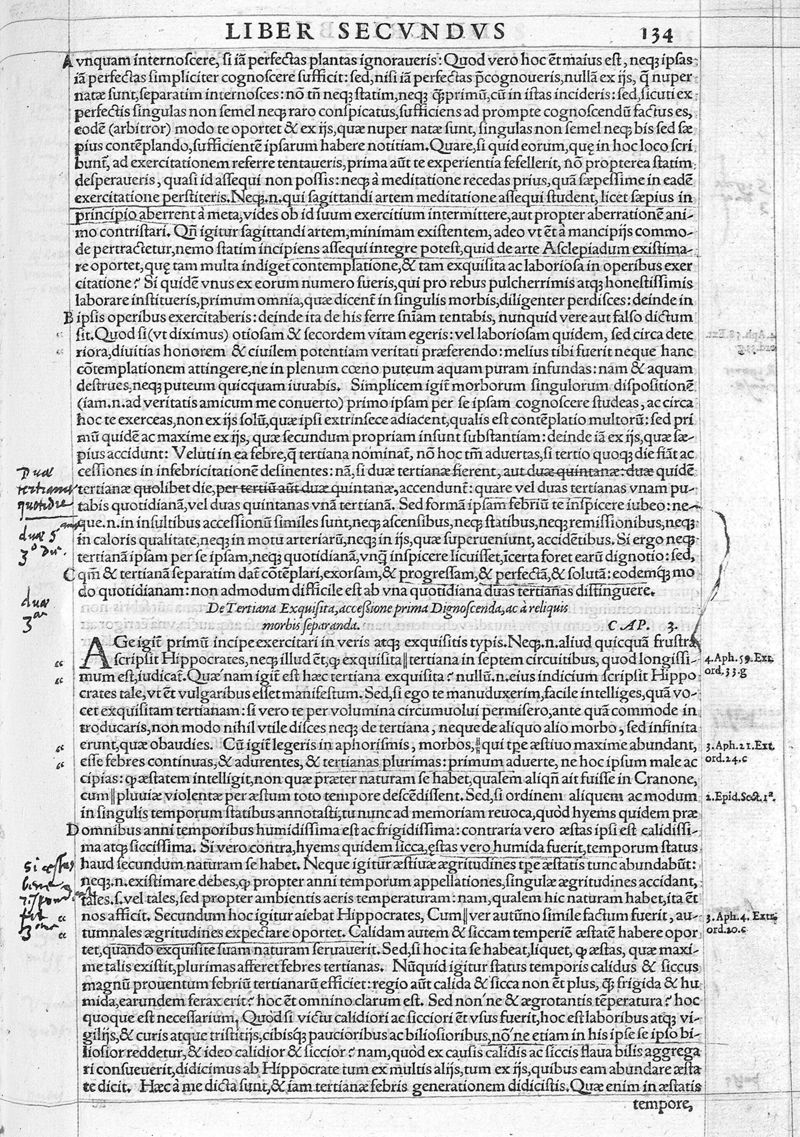 LIBER SECVNDVS 134
A vnquam internoscere, si iã perfectas plantas ignoraueris: Quod vero hoc ẽt maius est, neqȝ ipsas
iã perfectas simpliciter cognoscere sufficit: sed, nisi iã perfectas p̃cognoueris, nullã ex ijs, q̃ nuper
natæ sunt, separatim internosces: nõ tñ neqȝ statim, neqȝ q̃primũ, cũ in istas incideris: sed, sicuti ex
perfectis singulas non semel neqȝ raro conspicatus, sufficiens ad prompte cognoscendũ factus es,
eodẽ (arbitror) modo te oportet & ex ijs, quæ nuper natæ sunt, singulas non semel neqȝ bis sed sæ
pius contẽplando, sufficientẽ ipsarum habere notitiam. Quare, si quid eorum, quę in hoc loco scri
bunt̃, ad exercitationem referre tentaueris, prima aũt te experientia fefellerit, nõ propterea statim
desperaueris, quasi id assequi non possis: neqȝ à meditatione recedas prius, quã sæpessime in eadẽ
exercitatione perstiteris. Neqȝ.n. qui sagittandi artem meditatione assequi student, licet sæpius in
principio aberrent à meta, vides ob id suum exercitium intermittere, aut propter aberrationẽ ani-
mo contristari. Qñ igitur sagittandi artem, minimam existentem, adeo vt ẽt à mancipijs commo-
de pertractetur, nemo statim incipiens assequi integre potest, quid de arte Asclepiadum existima-
re oportet, quę tam multa indiget contemplatione, & tam exquisita ac laboriosa in operibus exer
citatione? Si quidẽ vnus ex eorum numero fueris, qui pro rebus pulcherrimis atqȝ honestissimis
laborare institueris, primum omnia, quæ dicent̃ in singulis morbis, diligenter perdisces: deinde in
B ipsis operibus exercitaberis: deinde ita de his ferre sñiam tentabis, nunquid vere aut falso dictum
sit. Quod si (vt diximus) otiosam & secordem vitam egeris: vel laboriosam quidem, sed circa dete
riora, diuitias honorem & ciuilem potentiam veritati præferendo: melius tibi fuerit neque hanc
cõtemplationem attingere, ne in plenum cœno puteum aquam puram infundas: nam & aquam
destrues, neqȝ puteum quicquam iuuabis. Simplicem igit̃ morborum singulorum dispositionẽ
(iam.n. ad veritatis amicum me conuerto) primo ipsam per se ipsam cognoscere studeas, ac circa
hoc te exerceas, non ex ijs solũ, quæ ipsi extrinsece adiacent, qualis est contẽplatio multorũ: sed pri
mũ quidẽ ac maxime ex ijs, quæ secundum propriam insunt substantiam: deinde iã ex ijs, quæ sæ-
pius accidunt: Veluti in ea febre, q̃ tertiana nominat̃, nõ hoc tm̃ aduertas, si tertio quoqȝ die fiãt ac
cessiones in infebricitationẽ desinentes: nã, si duæ tertianæ fierent, aut duæ quintanæ: duæ quidẽ
tertianæ quolibet die, per tertiũ aũt duæ quintanæ, accendunt̃: quare vel duas tertianas vnam pu-
tabis quotidianã, vel duas quintanas vnã tertianã. Sed formã ipsam febriũ te inspicere iubeo: ne-
que.n. in insultibus accessionũ similes sunt, neqȝ ascensibus, neqȝ statibus, neqȝ remissionibus, neqȝ
in caloris qualitate, neqȝ in motu arteriarũ, neqȝ in ijs, quæ superueniunt, accidẽtibus. Si ergo neqȝ
tertianã ipsam per se ipsam, neqȝ quotidianã, vnq̃ inspicere licuisset, ĩcerta foret earũ dignotio: sed,
C qm̃ & tertianã separatim dat̃ cõtẽplari, exorsam, & progressam, & perfectã, & solutã: eodemqȝ mo
do quotidianam: non admodum difficile est ab vna quotidiana duas tertianas distinguere.
De Tertiana Exquisita, accessione prima Dignoscenda, ac à reliquis
morbis separanda. CAP. 3.
AGe igit̃ primũ incipe exercitari in veris atqȝ exquisitis typis. Neqȝ.n. aliud quicquã frustra
scripsit Hippocrates, neqȝ illud ẽt, q̃ exquisita tertiana in septem circuitibus, quod longissi-
mum est, iudicat̃. Quæ nam igit̃ est hæc tertiana exquisita? nullũ.n. eius indicium scripsit Hippo
crates tale, vt ẽt vulgaribus esset manifestum. Sed, si ego te manuduxerim, facile intelliges, quã vo-
cet exquisitam tertianam: si vero te per volumina circumuolui permisero, ante quã commode in
troducaris, non modo nihil vtile disces neqȝ de tertiana, neque de aliquo alio morbo, sed infinita
erunt, quæ obaudies. Cũ igit̃ legeris in aphorismis, morbos, qui tp̃e æstiuo maxime abundant,
esse febres continuas, & adurentes, & tertianas plurimas: primum aduerte, ne hoc ipsum male ac
cipias: q̃ æstatem intelligit, non quæ præter naturam se habet, qualem aliqñ ait fuisse in Cranone,
cum pluuiæ violentæ per æstum toto tempore descẽdissent. Sed, si ordinem aliquem ac modum
in singulis temporum statibus annotasti, tu nunc ad memoriam reuoca, quòd hyems quidem præ
D omnibus anni temporibus humidissima est ac frigidissima: contraria vero æstas ipsi est calidissi-
ma atqȝ siccissima. Si vero contra, hyems quidem sicca, ęstas vero humida fuerit, temporum status
haud secundum naturam se habet. Neque igitur æstiuæ ægritudines tp̃e æstatis tunc abundabũt:
neqȝ.n. existimare debes, q̃ propter anni temporum appellationes, singulæ ægritudines accidant,
tales.s. vel tales, sed propter ambientis aeris temperaturam: nam, qualem hic naturam habet, ita ẽt
nos afficit. Secundum hoc igitur aiebat Hippocrates, Cum ver autũno simile factum fuerit, au-
tumnales ægritudines expectare oportet. Calidam autem & siccam temperiẽ æstatẽ habere opor
tet, quando exquisite suam naturam seruauerit. Sed, si hoc ita se habeat, liquet, q̃ æstas, quæ maxi-
me talis existit, plurimas afferet febres tertianas. Nũquid igitur status temporis calidus & siccus
magnũ prouentum febriũ tertianarũ efficiet: regio aũt calida & sicca non ẽt plus, q̃ frigida & hu
mida, earundem ferax erit? hoc ẽt omnino clarum est. Sed non'ne & ægrotantis tẽperatura? hoc
quoque est necessarium. Quòd si victu calidiori ac sicciori ẽt vsus fuerit, hoc est laboribus atqȝ vi-
gilijs, & curis atque tristitijs, cibisqȝ paucioribus ac biliosioribus, nõ'ne etiam in his ipse se ipso bi-
liosior reddetur, & ideo calidior & siccior? nam, quòd ex causis calidis ac siccis flaua bilis aggrega
ri consueuerit, didicimus ab Hippocrate tum ex multis alijs, tum ex ijs, quibus eam abundare æsta
te dicit. Hæc à me dicta sunt, & iam tertianæ febris generationem didicistis. Quæ enim in æstatis
tempore,
Duæ
tertianæ
quotidie
duæ
3ã
4. Aph. 59. Ext.
ord. 33. g
3. Aph. 21. Ext.
ord. 24. c
2. Epid. Sect. 1ª.
3. Aph. 4. Extr.
ord. 20. c